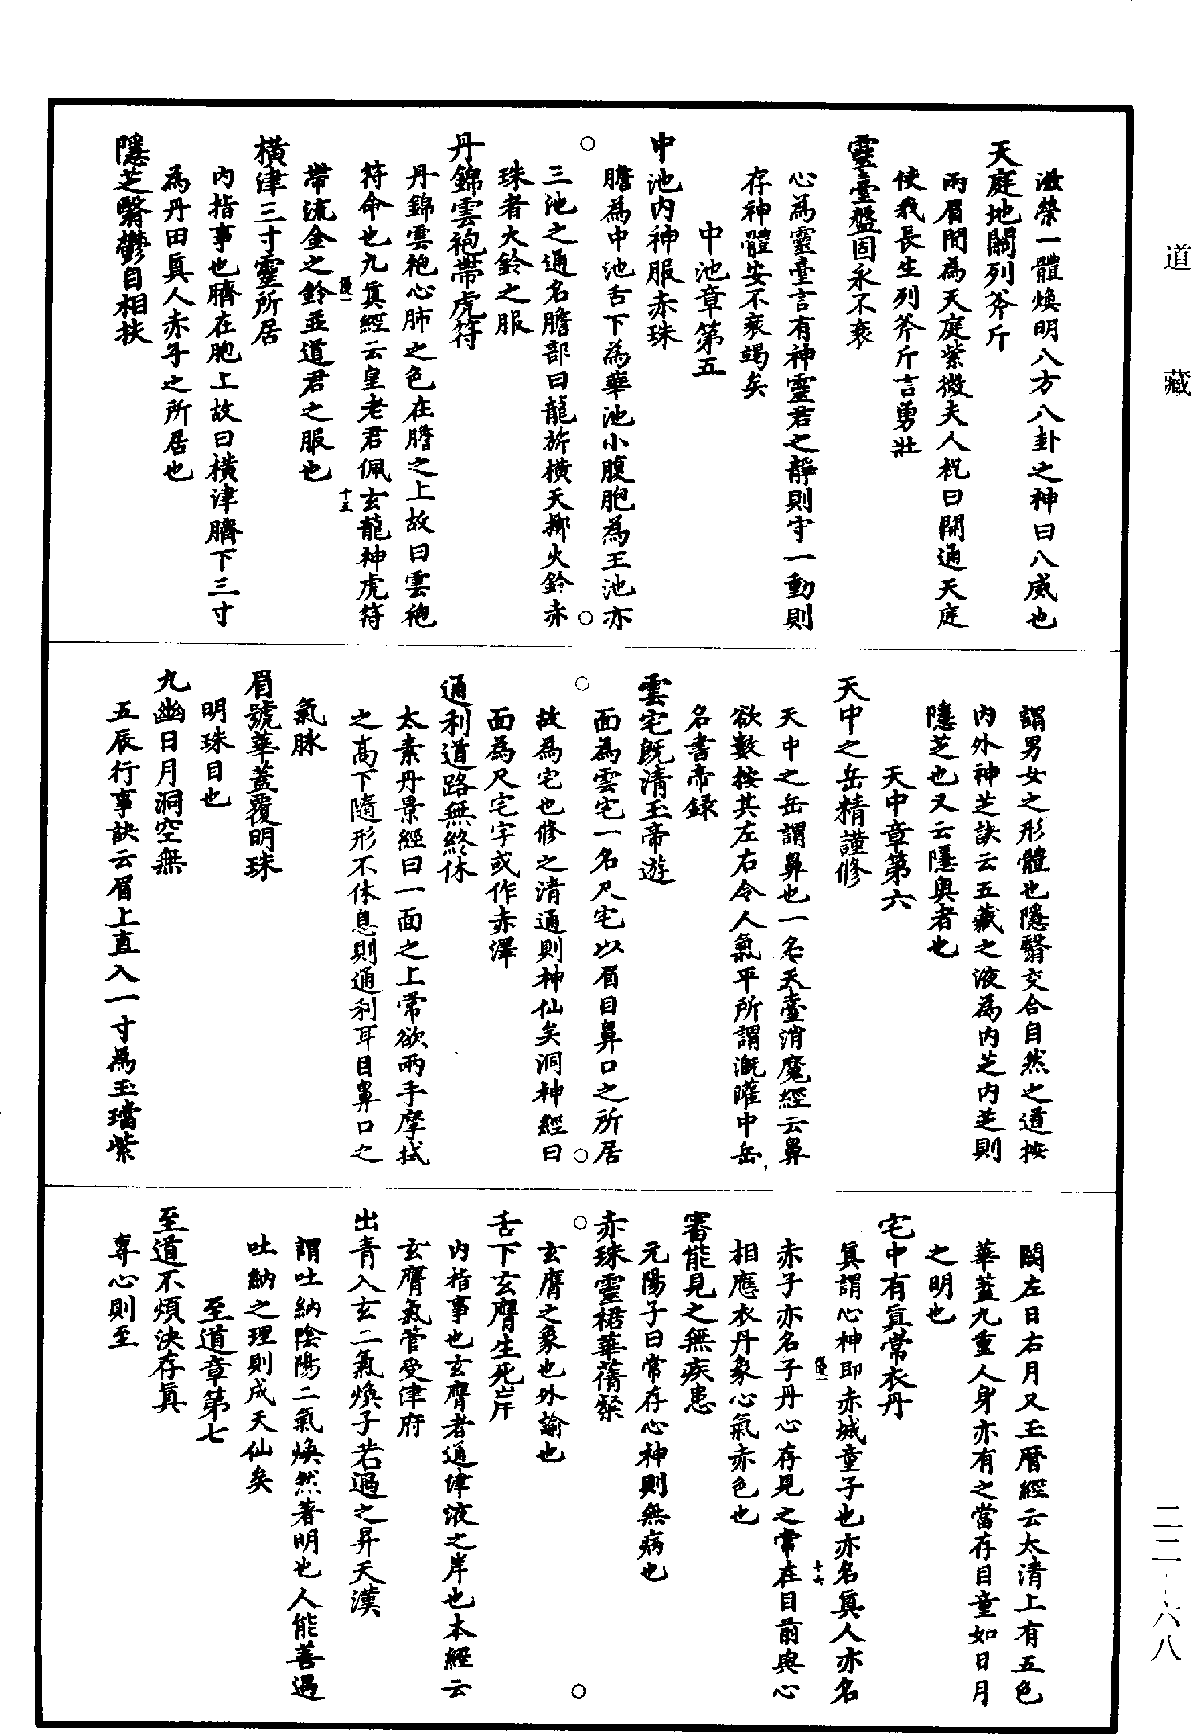 道藏
滋榮一體煥明八方八卦之神曰八威也
天庭地關列斧斤
兩眉間為天庭紫微夫人祝曰開通天庭
使我長生列斧斤言勇壯
靈臺盤固永不衰
心為靈臺言有神靈君之靜則守一動則
存神體安不衰竭矣
中池章第五
中池內神服赤珠
膽為中池舌下為華池小腹胞為玉池亦
三池之通名膽部曰龍旂橫天擲火鈴赤
珠者火鈴之服
丹錦雲袍帶虎符
丹錦雲袍心肺之色在膽之上故曰雲袍
符命也九真經云皇老君佩玄龍神虎符
十五
帶流金之鈴並道君之服也
橫津三寸靈所居
內指事也臍在胞上故曰橫津臍下三寸
為丹田真人赤子之所居也
隱芝翳鬱自相扶
謂男女之形體也隱翳交合自然之道按
內外神芝訣云五藏之液為內芝內芝則
隱芝也又云隱奧者也
天中章第六
天中之岳精謹修
天中之岳謂鼻也一名天臺消魔經云鼻
欲數按其左右令人氣平所謂溉灌中岳
名書帝錄
雲宅既清玉帝遊
面為雲宅一名尺宅以眉目鼻口之所居
故為宅也修之清通則神仙矣洞神經曰
面為尺宅字或作赤澤
通利道路無終休
太素丹景經曰一面之上常欲兩手摩拭
之高下隨形不休息則通利耳目鼻口之
氣脉
眉號華蓋覆明珠
明珠目也
九幽日月洞空無
五辰行事訣云眉上直入一寸為玉璫紫
闕左日右月又玉曆經云太清上有五色
華蓋九重人身亦有之當存目童如日月
之明也
宅中有真常衣丹
真謂心神即赤城童子也亦名真人亦名
十六
赤子亦名子丹心存見之常在目前與心
相應衣丹象心氣赤色也
審能見之無疾患
元陽子曰常存心神則無病也
赤珠靈裙華蒨粲
玄膺之象也外諭也
舌下玄膺生死岸
內指事也玄膺者通津液之岸也本經云
玄膺氣管受津府
出青入玄二氣煥子若遇之昇天漢
謂吐納陰陽二氣煥然著明也人能善遇
吐納之理則成天仙矣
至道章第七
至道不煩決存真
專心則至
二二-六八